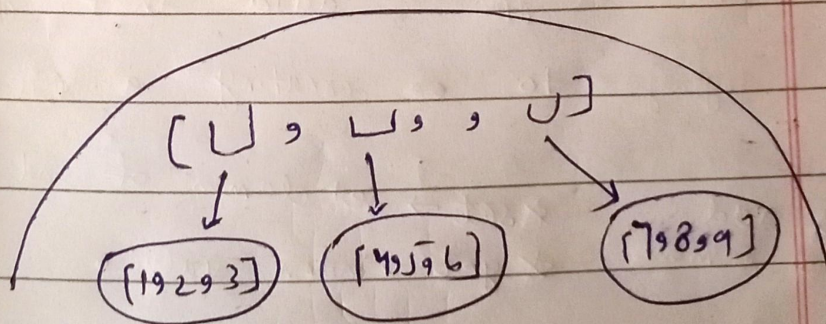 [ [], [], , [] ]
[1,2,3] [4,5,6] [7,8,9]